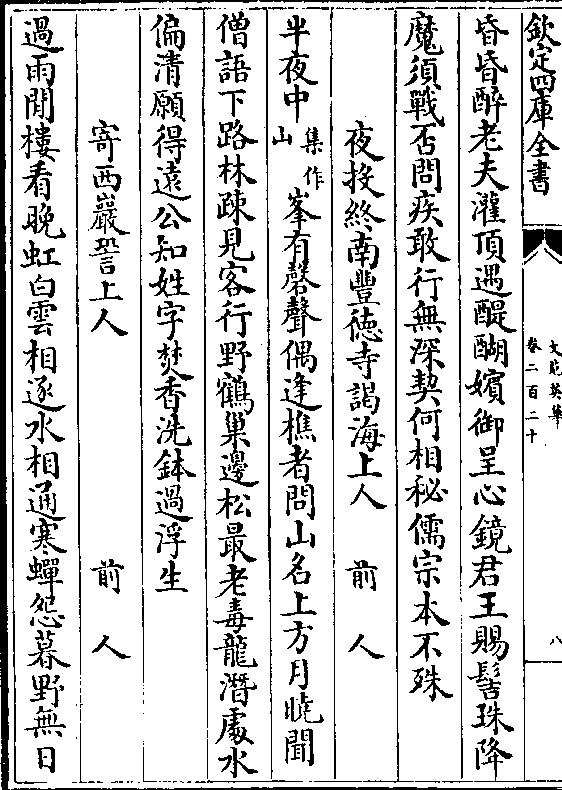 欽定四庫全書
文苑英華
卷二百二十
八
昏昏醉老夫灌頂遇醍醐嬪御呈心鏡君王賜髻珠降
魔須戰否問疾敢行無深契何相秘儒宗本不殊
夜投終南豐徳寺謁海上人 前人
半夜中集作山峯有磬聲偶逢樵者問山名上方月曉聞
僧語下路林疎見客行野鶴巢邊松最老毒龍潛處水
偏清願得遠公知姓字焚香洗鉢過浮生
寄西巖詧上人 前人
過雨閒樓看晚虹白雲相逐水相通寒蟬怨暮野無日